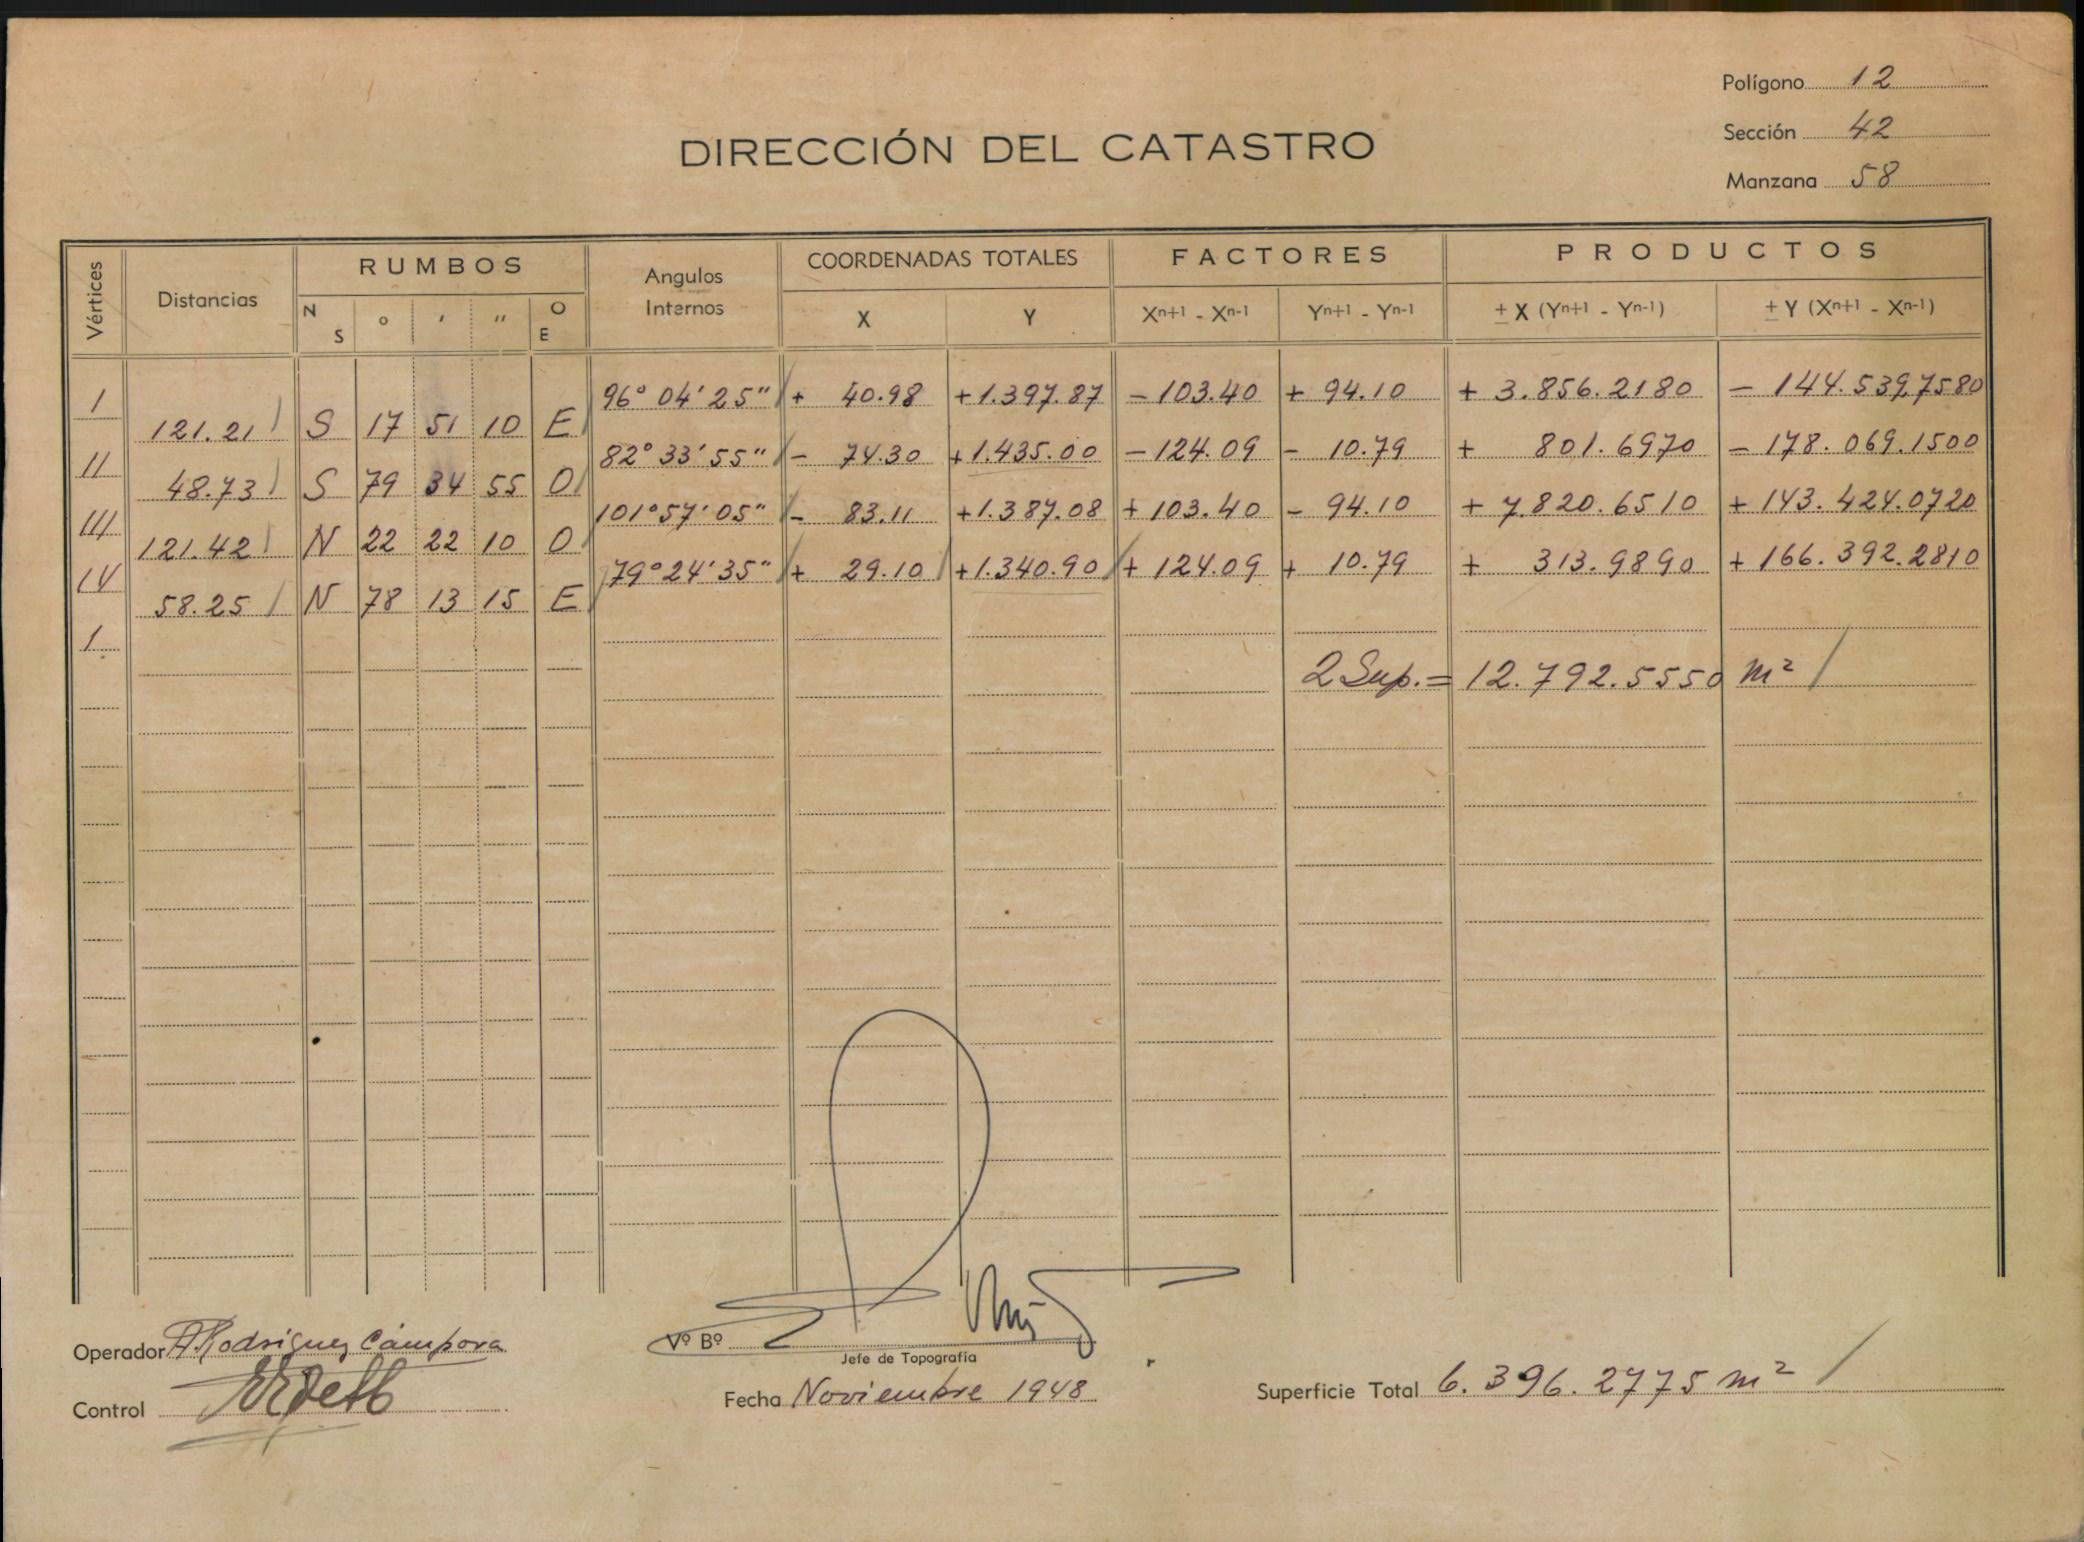 Polígono 12
Sección 42
Manzana 58
DIRECCIÓN DEL CATASTRO
Vértices Distancias RUMBOS Angulos Internos COORDENADAS TOTALES FACTORES PRODUCTOS
N S ° ' " O E X Y Xn+1 - Xn-1 Yn+1 - Yn-1 ± X (Yn+1 - Yn-1) ± Y (Xn+1 - Xn-1)
I 96° 04' 25" + 40.98 +1.397.87 -103.40 + 94.10 + 3.856.2180 - 144.539,7580
121.21 S 17 51 10 E
II 82° 33' 55" - 74.30 +1.435.00 -124.09 - 10.79 + 801.6970 - 178.069.1500
48.73 S 79 34 55 O
III 101° 57' 05" - 83.11 +1.387.08 + 103.40 - 94.10 + 7.820.6510 + 143.424.0720
121.42 N 22 22 10 O
IV 79° 24' 35" + 29.10 +1.340.90 + 124.09 + 10.79 + 313.9890 + 166.392.2810
58.25 N 78 13 15 E
I
2 Sup. = 12.792.5550 m²
Operador A. Rodriguez Cámpora
Vº Bº
Jefe de Topografía
Control
Fecha Noviembre 1948
Superficie Total 6.396.2775 m²